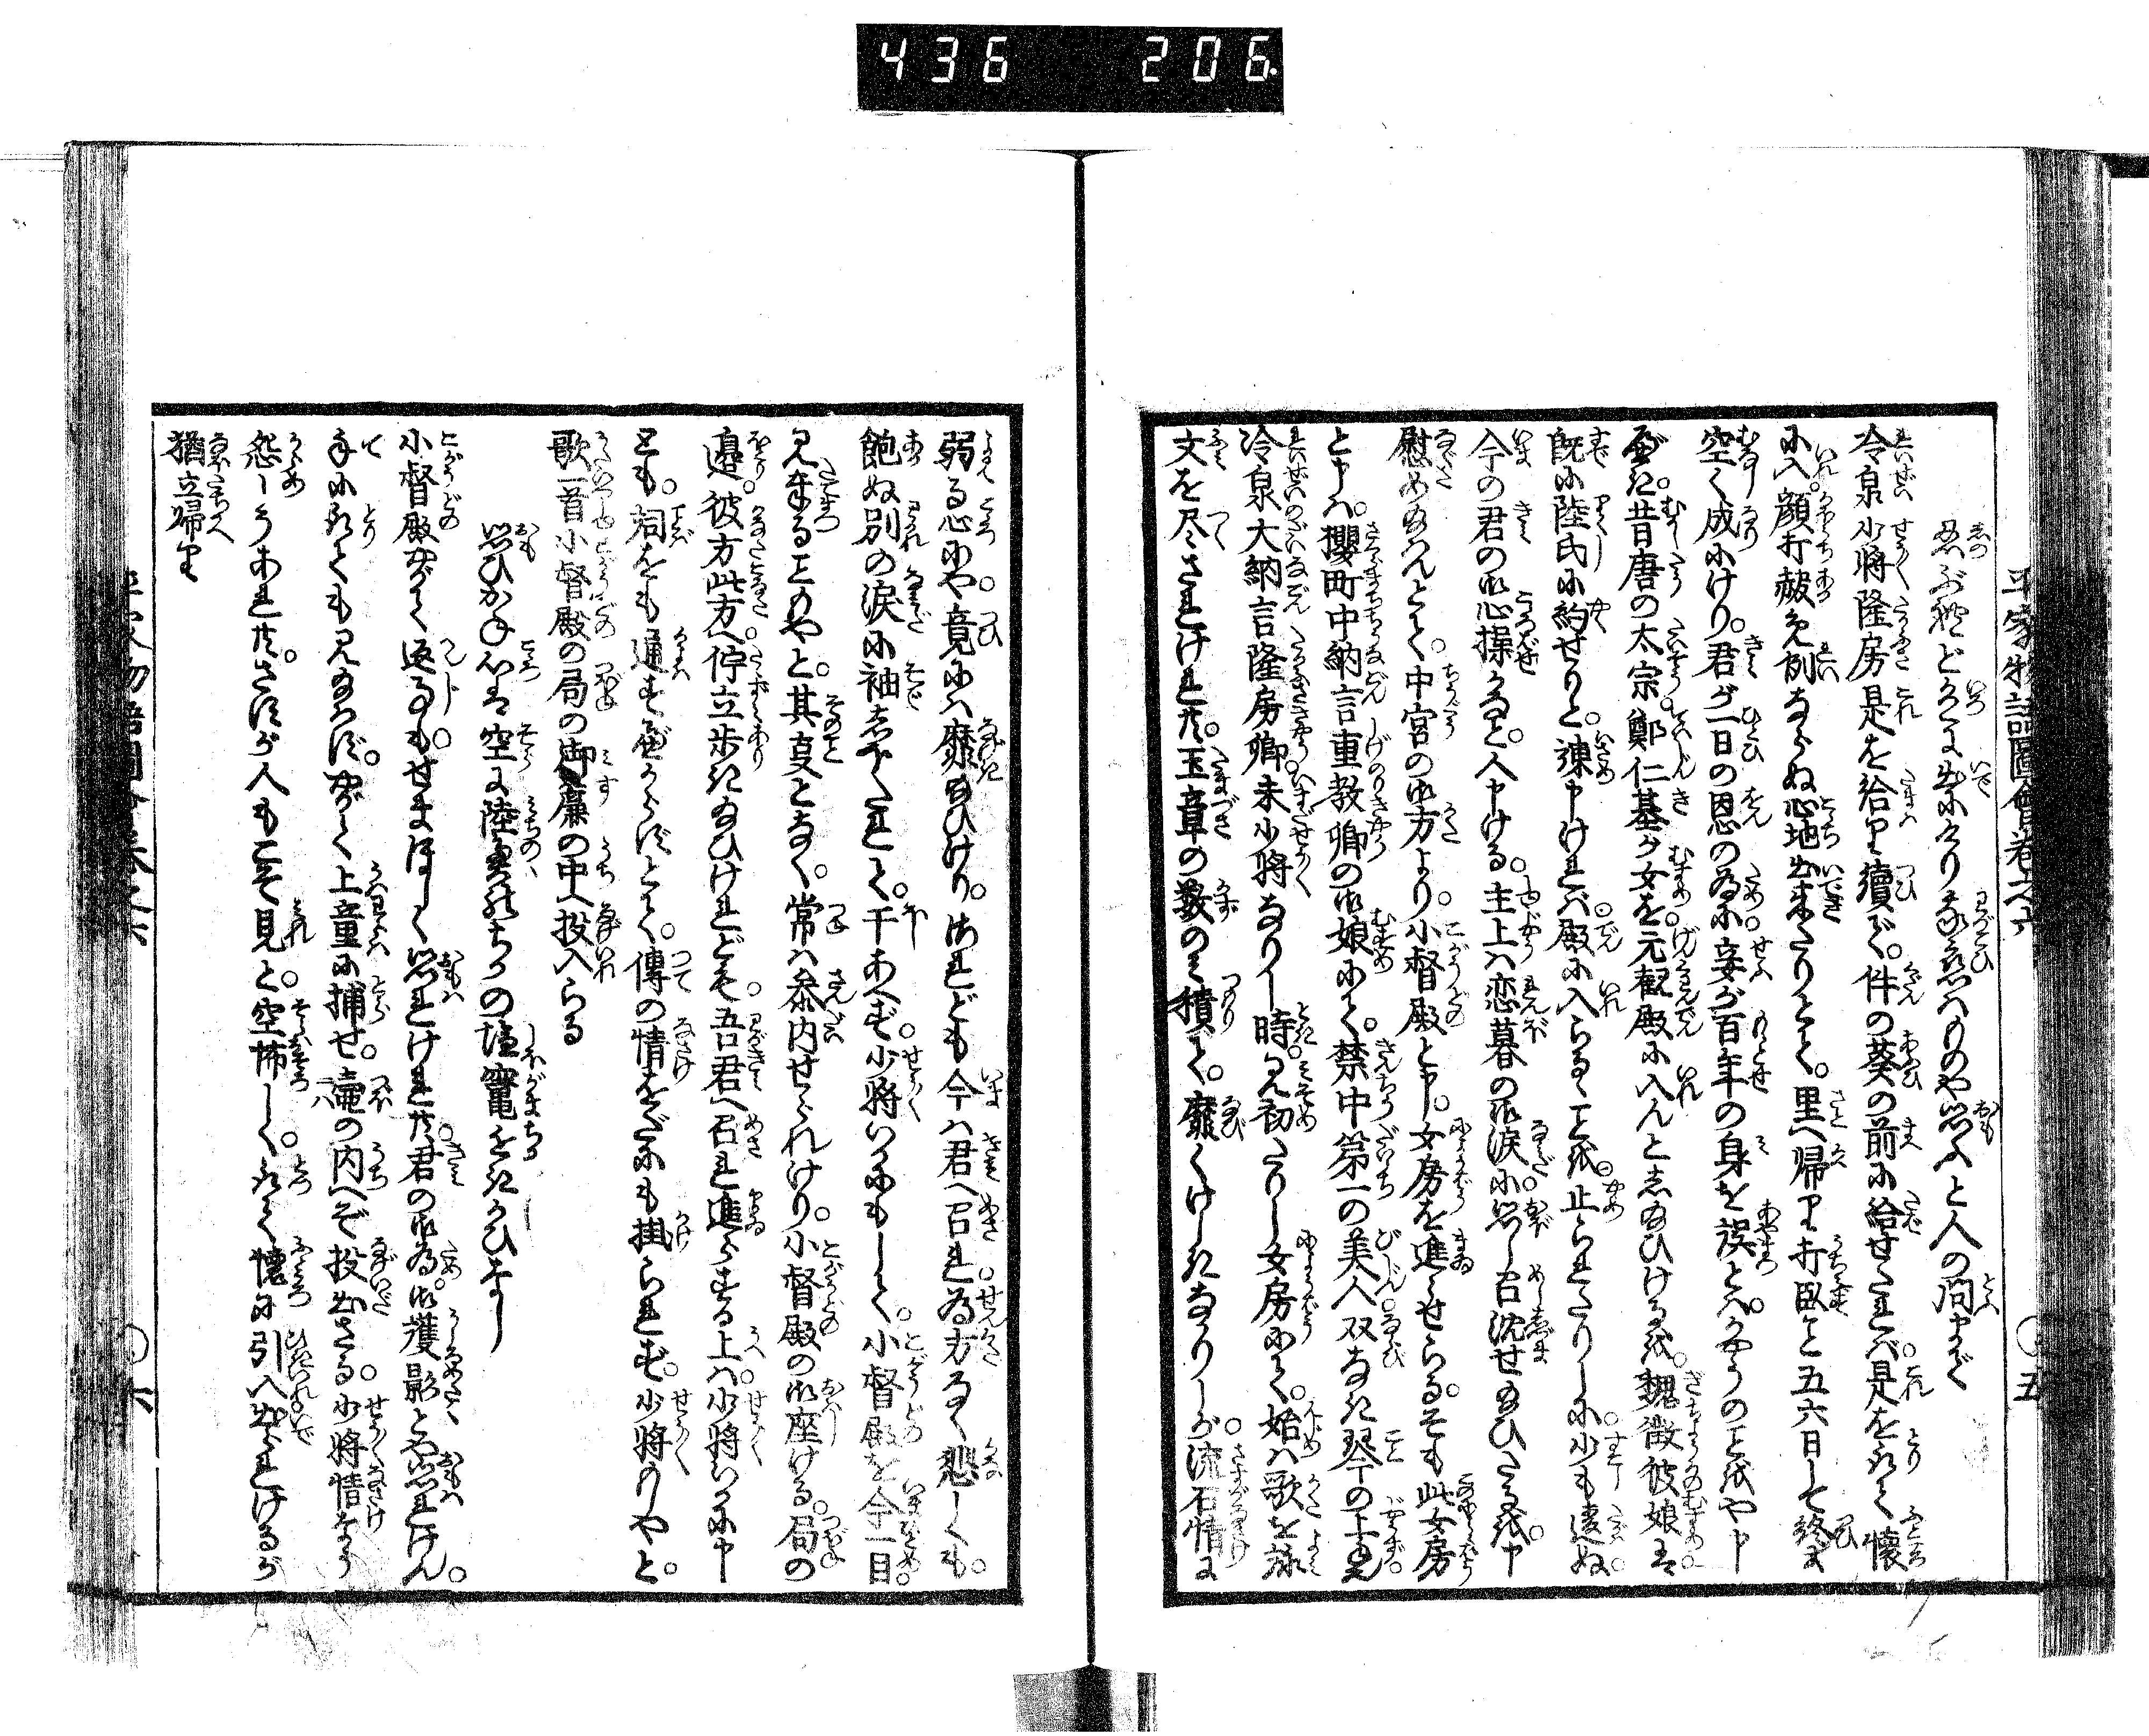 436 206
平家物語圖會卷之六 〇五
忍ぶ程どいろに出にけり我恋はものや思ふと人の問まで
冷泉少将隆房是を給り續で。件の葵の前に給せたれば。是を取て懐
に入顔打赧め例ならぬ心地出来たりとて。里へ帰り打臥と五六日して終に
空く成にけり。君が一日の恩の為に。妾が百年の身を誤とは。かやうのことをや申
べき。昔唐の太宗。鄭仁基が女を元観殿に入んとし給ひけるを。魏徴彼娘は
既に陸氏に約せりと。諫申ければ。殿に入らるゝことを。止られたりしに。少も違ぬ
今の君の御心操かなと。人申ける。主上は恋慕の御涙に思し召沈せ給ひたるを。申
慰め給はんとて。中宮の御方より。小督殿と申。女房を進せらる。そも此女房
と申は。櫻町中納言重教卿の御娘にて。禁中第一の美人双なき琴の上手
冷泉大納言隆房卿未少将なりし時。見初たりし女房にて。始は歌を詠
文を尽されけれ共。玉章の数のみ積て。靡くけしきなかりしが。流石情に
弱る心にや。竟には靡給ひけり。されども今は君へ召れ。為方なく悲しくも。
飽ぬ別の涙に袖しをたれて。干あへず。少将いかにもして。小督殿を今一目。
見奉ることのやと。其事となく。常は参内せられけり。小督殿の御座ける。局の
邊。彼方此方へ。佇立歩き給ひけれども。吾君へ召れ進らする上は。少将いかに申
とも。詞をも通すべからずとて。傳の情をだにも掛られず。少将もやと。
歌一首小督殿の局の御簾の中へ投入らる
思ひかね心は空に陸奥のちかの塩竃ちかきかひなし
小督殿やがて返事もせまほしく思はれけれ共。君の御為。御後影とや思はれけん。
手に取ても見給はず。やがて上童に捕せ。壷の内へぞ投出さる。少将情なう
怨しうあれ共。さすが人もこそ見れと。空怖しく。取て懐に引入出られけるが
猶立帰り